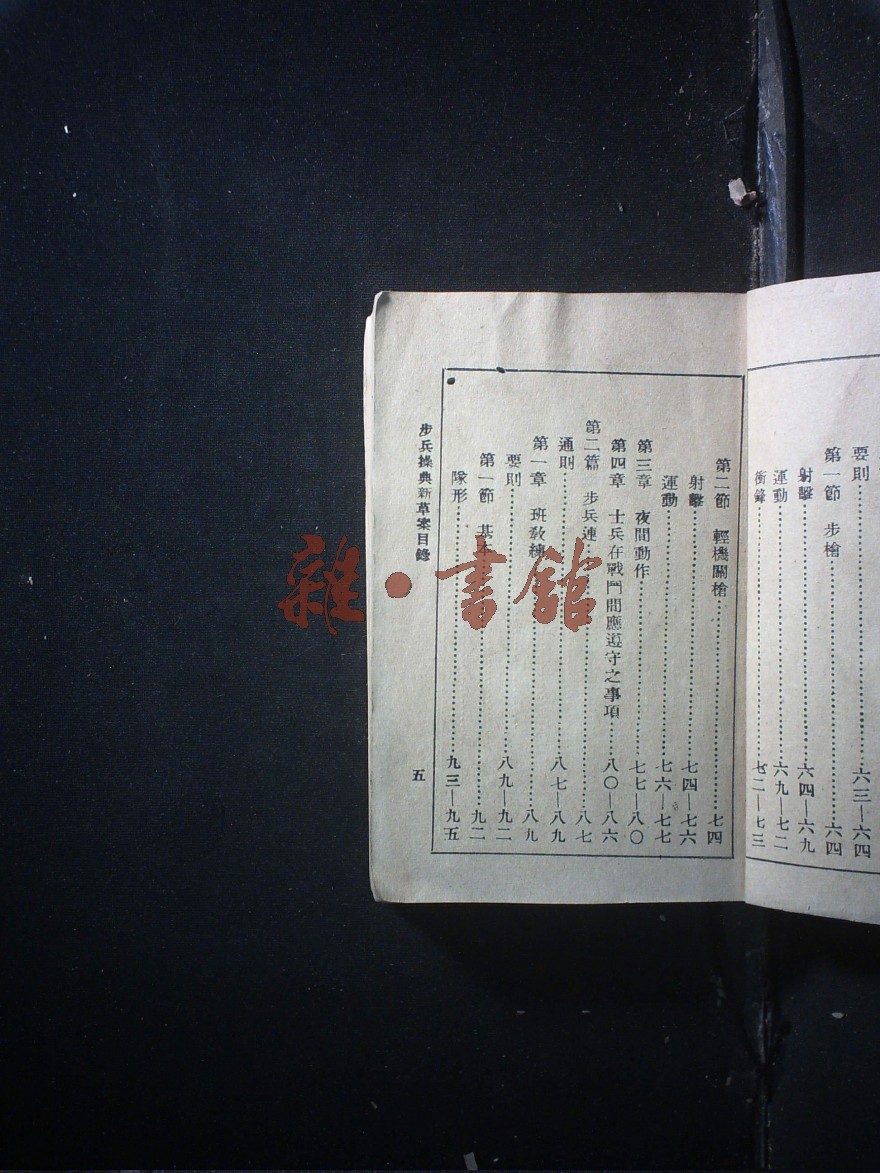 要則……六三—六四
第一節 步槍……六四
射擊……六四—六九
運動……六九—七二
衝鋒……七二—七三
第二節 輕機關槍……七四
射擊……七四—七六
運動……七六—七七
第三章 夜間動作……七七—八〇
第四章 士兵在戰鬥間應遵守之事項……八〇—八六
第二篇 步兵連……八七
通則……八七—八九
第一章 班教練……八九
要則……八九—九二
第一節 基本……九二
隊形……九三—九五
步兵操典新草案目錄
五
雜·書館